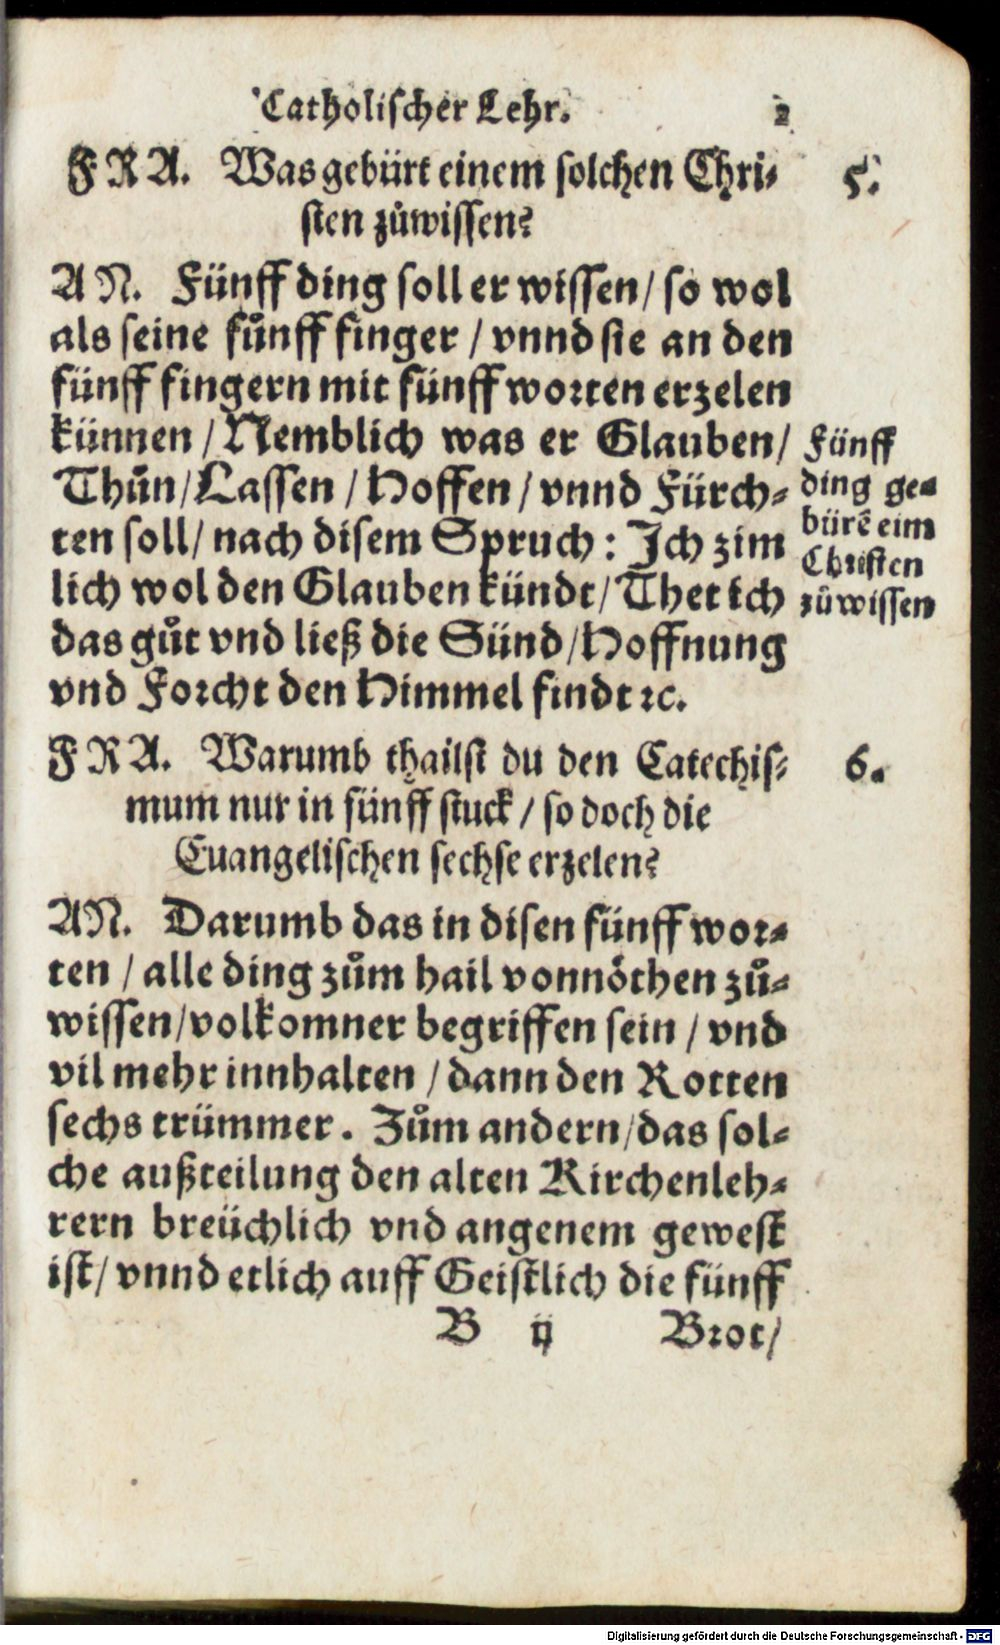 Catholischer Lehr. 2
FRA. Was gebürt einem solchen Chri⸗ 5.
sten zůwissen?
AN. Fünff ding soll er wissen/ so wol
als seine fůnff finger / vnnd sie an den
fünff fingern mit fünff worten erzelen
künnen / Nemblich was er Glauben/
Thůn/ Lassen / Hoffen / vnnd Fürch⸗
ten soll/ nach disem Spruch: Ich zim
lich wol den Glauben kündt/ Thet ich
das gůt vnd ließ die Sünd/ Hoffnung
vnd Forcht den Himmel findt ꝛc.
Fünff
ding ge⸗
bürẽ eim
Christen
zůwissen
FRA. Warumb thailst du den Catechis⸗ 6.
mum nur in fünff stuck / so doch die
Euangelischen sechse erzelen?
AN. Darumb das in disen fünff wor⸗
ten / alle ding zům hail vonnöthen zů⸗
wissen/ volkomner begriffen sein / vnd
vil mehr innhalten / dann den Rotten
sechs trümmer. Zům andern/ das sol⸗
che außteilung den alten Kirchenleh⸗
rern breüchlich vnd angenem gewest
ist/ vnnd etlich auff Geistlich die fünff
B ij Brot/
Digitalisierung gefördert durch die Deutsche Forschungsgemeinschaft - DFG